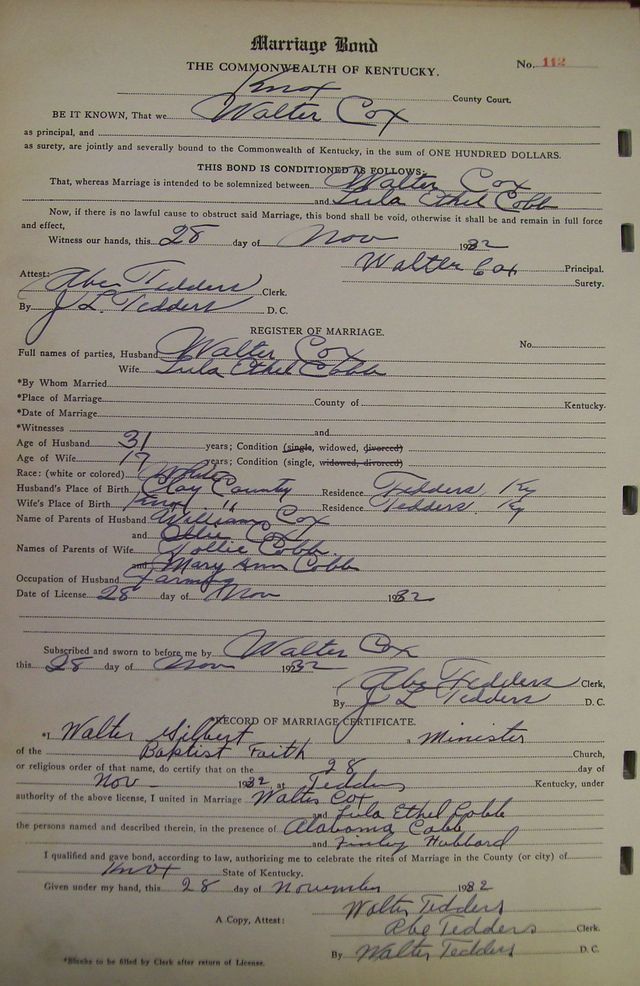 Marriage Bond
THE COMMONWEALTH OF KENTUCKY.
No. 112
Knox County Court.
BE IT KNOWN, That we Walter Cox
as principal, and
as surety, are jointly and severally bound to the Commonwealth of Kentucky, in the sum of ONE HUNDRED DOLLARS.
THIS BOND IS CONDITIONED AS FOLLOWS:
That, whereas Marriage is intended to be solemnized between Walter Cox
and Lula Ethel Cobb
Now, if there is no lawful cause to obstruct said Marriage, this bond shall be void, otherwise it shall be and remain in full force
and effect,
Witness our hands, this 28 day of Nov 1932
Walter Cox Principal.
Surety.
Attest: Abe Tedders Clerk.
By J L. Tedders D. C.
REGISTER OF MARRIAGE.
No.
Full names of parties, Husband Walter Cox
Wife Lula Ethel Cobb
*By Whom Married
*Place of Marriage County of Kentucky.
*Date of Marriage
*Witnesses and
Age of Husband 31 years; Condition (single, widowed, divorced)
Age of Wife 17 years; Condition (single, widowed, divorced)
Race: (white or colored) White
Husband's Place of Birth Clay County Residence Tedders, Ky
Wife's Place of Birth Knox " Residence Tedders, Ky
Name of Parents of Husband William Cox
and Cox
Names of Parents of Wife Cobb.
and Mary Ann Cobb
Occupation of Husband Farming
Date of License 28 day of Nov 1932
Subscribed and sworn to before me by Walter Cox
this 28 day of Nov 1932
Abe Tedders Clerk,
By J L Tedders D. C.
*RECORD OF MARRIAGE CERTIFICATE.
*I Walter Gilbert a Minister
of the Baptist Faith Church,
or religious order of that name, do certify that on the 28 day of
Nov 1932 at Tedders Kentucky, under
authority of the above license, I united in Marriage Walter Cox
and Lula Ethel Cobb
the persons named and described therein, in the presence of Alabama Cobb
and Finley Hubbard
I qualified and gave bond, according to law, authorizing me to celebrate the rites of Marriage in the County (or city) of
Knox State of Kentucky.
Given under my hand, this 28 day of November 1932
Walter Tedders
A Copy, Attest: Abe Tedders Clerk.
By Walter Tedders D. C.
*Blanks to be filled by Clerk after return of License.